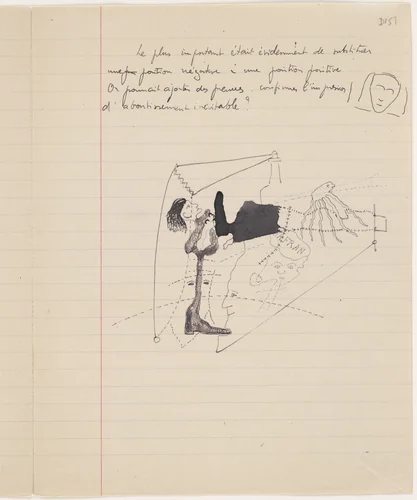 D157
Le plus important était évidemment de substituer
une position négative à une position positive.
On pourrait ajouter des preuves. confirmer l'
d'aboutissement inévitable ?
ÉCRAN